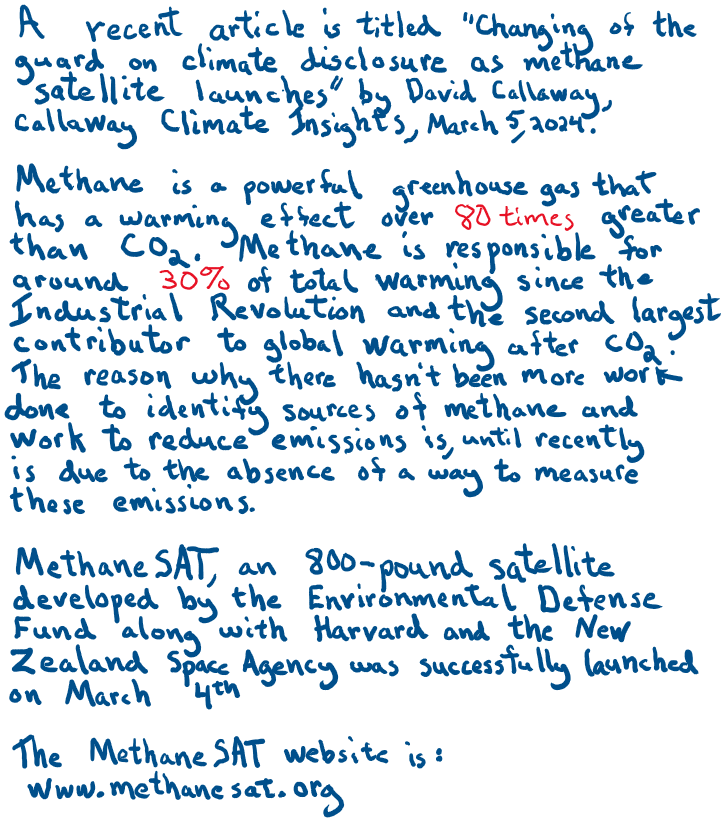 A recent article is titled "Changing of the
guard on climate disclosure as methane
satellite launches" by David Callaway,
Callaway Climate Insights, March 5, 2024.
Methane is a powerful greenhouse gas that
has a warming effect over 80 times greater
than CO₂. Methane is responsible for
around 30% of total warming since the
Industrial Revolution and the second largest
contributor to global warming after CO₂.
The reason why there hasn't been more work
done to identify sources of methane and
work to reduce emissions is, until recently
is due to the absence of a way to measure
these emissions.
MethaneSAT, an 800-pound satellite
developed by the Environmental Defense
Fund along with Harvard and the New
Zealand Space Agency was successfully launched
on March 4th
The MethaneSAT website is:
www.methanesat.org